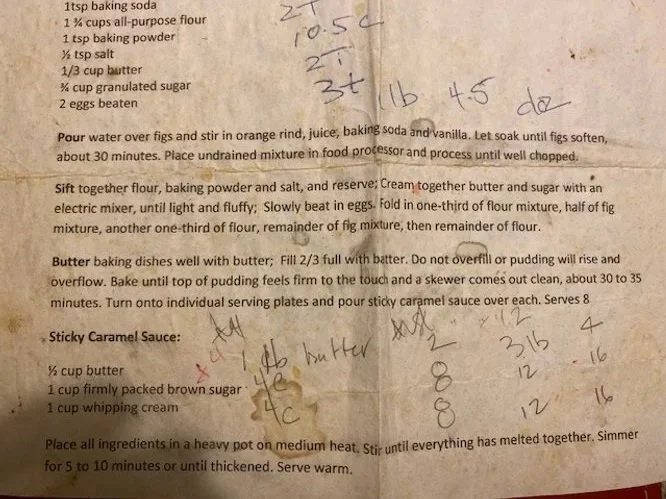 1tsp baking soda 2T
1 ¾ cups all-purpose flour 10.5 c
1 tsp baking powder 2T
½ tsp salt 3t
1/3 cup butter 1 lb 4.5 doz
¾ cup granulated sugar
2 eggs beaten
Pour water over figs and stir in orange rind, juice, baking soda and vanilla. Let soak until figs soften,
about 30 minutes. Place undrained mixture in food processor and process until well chopped.
Sift together flour, baking powder and salt, and reserve; Cream together butter and sugar with an
electric mixer, until light and fluffy; Slowly beat in eggs. Fold in one-third of flour mixture, half of fig
mixture, another one-third of flour, remainder of fig mixture, then remainder of flour.
Butter baking dishes well with butter; Fill 2/3 full with batter. Do not overfill or pudding will rise and
overflow. Bake until top of pudding feels firm to the touch and a skewer comes out clean, about 30 to 35
minutes. Turn onto individual serving plates and pour sticky caramel sauce over each. Serves 8
Sticky Caramel Sauce: x4
½ cup butter 1 lb butter 2 3lb 4
1 cup firmly packed brown sugar 4c 8 12 16
1 cup whipping cream 4c 8 12 16
Place all ingredients in a heavy pot on medium heat. Stir until everything has melted together. Simmer
for 5 to 10 minutes or until thickened. Serve warm.